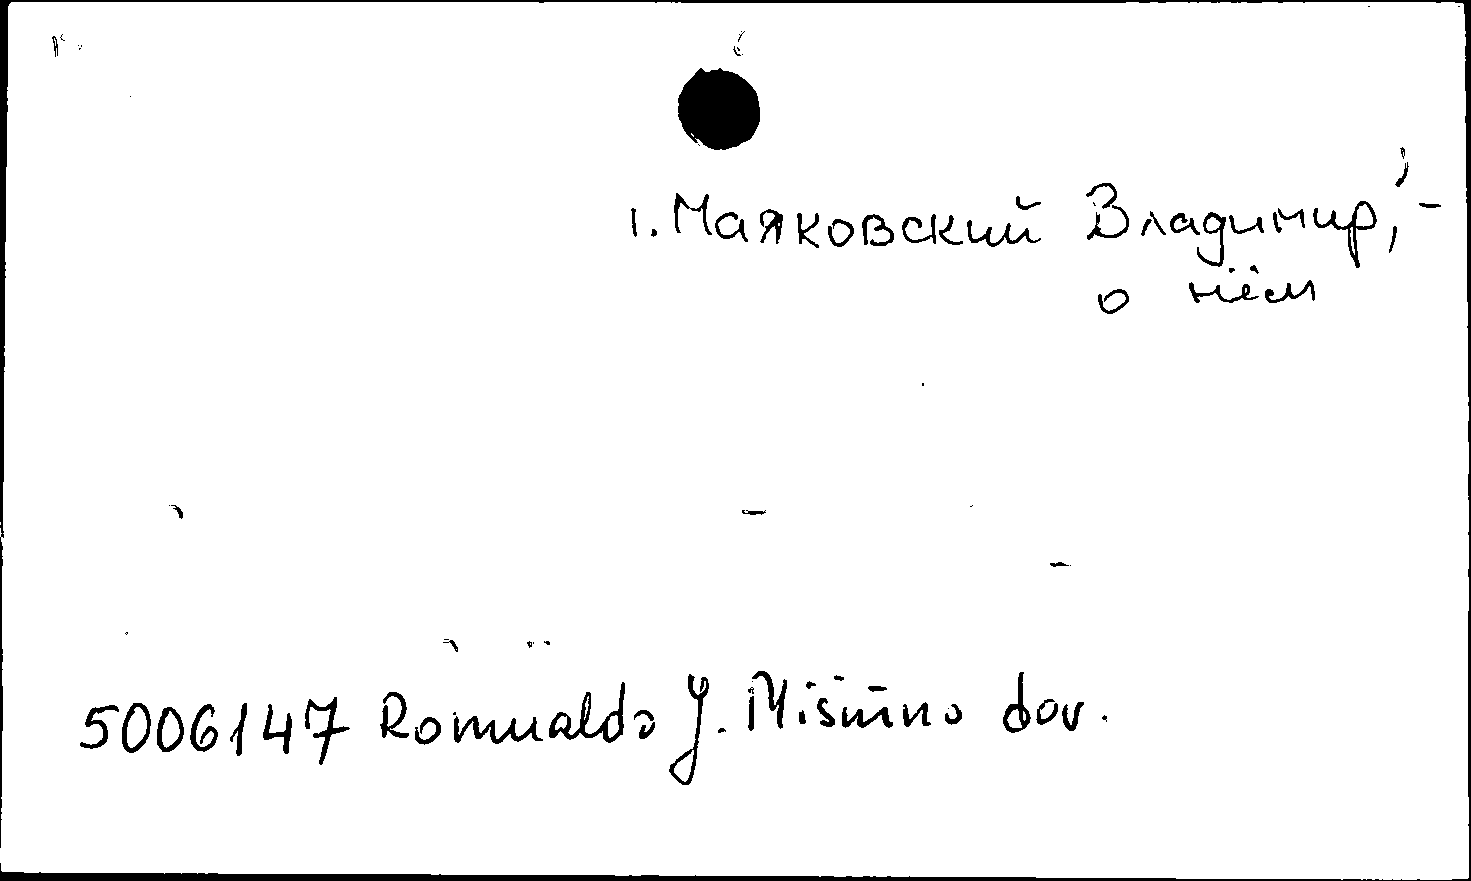 1. Маяковский Владимир, -
о нём
5006147 Romualdo J. Mišiūno dov.